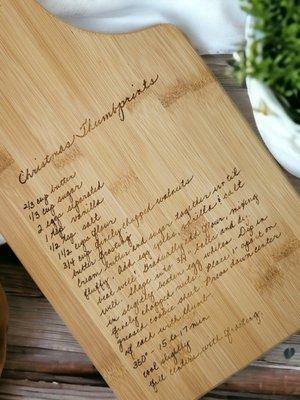 Christmas Thumbprints
2/3 cup butter
1/3 cup sugar
2 eggs separated
1 tsp vanilla
1/2 tsp salt
1 1/2 cups flour
3/4 cup finely chopped walnuts
butter frosting
Cream butter and sugar together until
fluffy. Add egg yolks, vanilla & salt
beat well. Gradually add flour mixing
well. Shape into 3/4" balls and dip
in slightly beaten egg whites. Dip in
finely chopped nuts. Place 1" apart on
greased cookie sheet. Press down center
of each with thumb.
350° 15 to 17 min
cool slightly
fill centers with frosting.